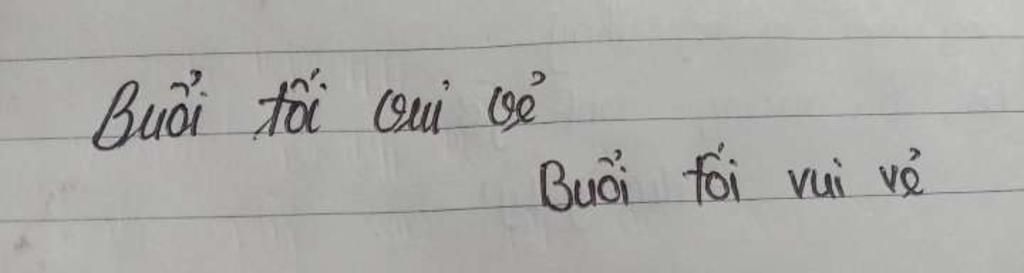 Buổi tối vui vẻ
Buổi tối vui vẻ